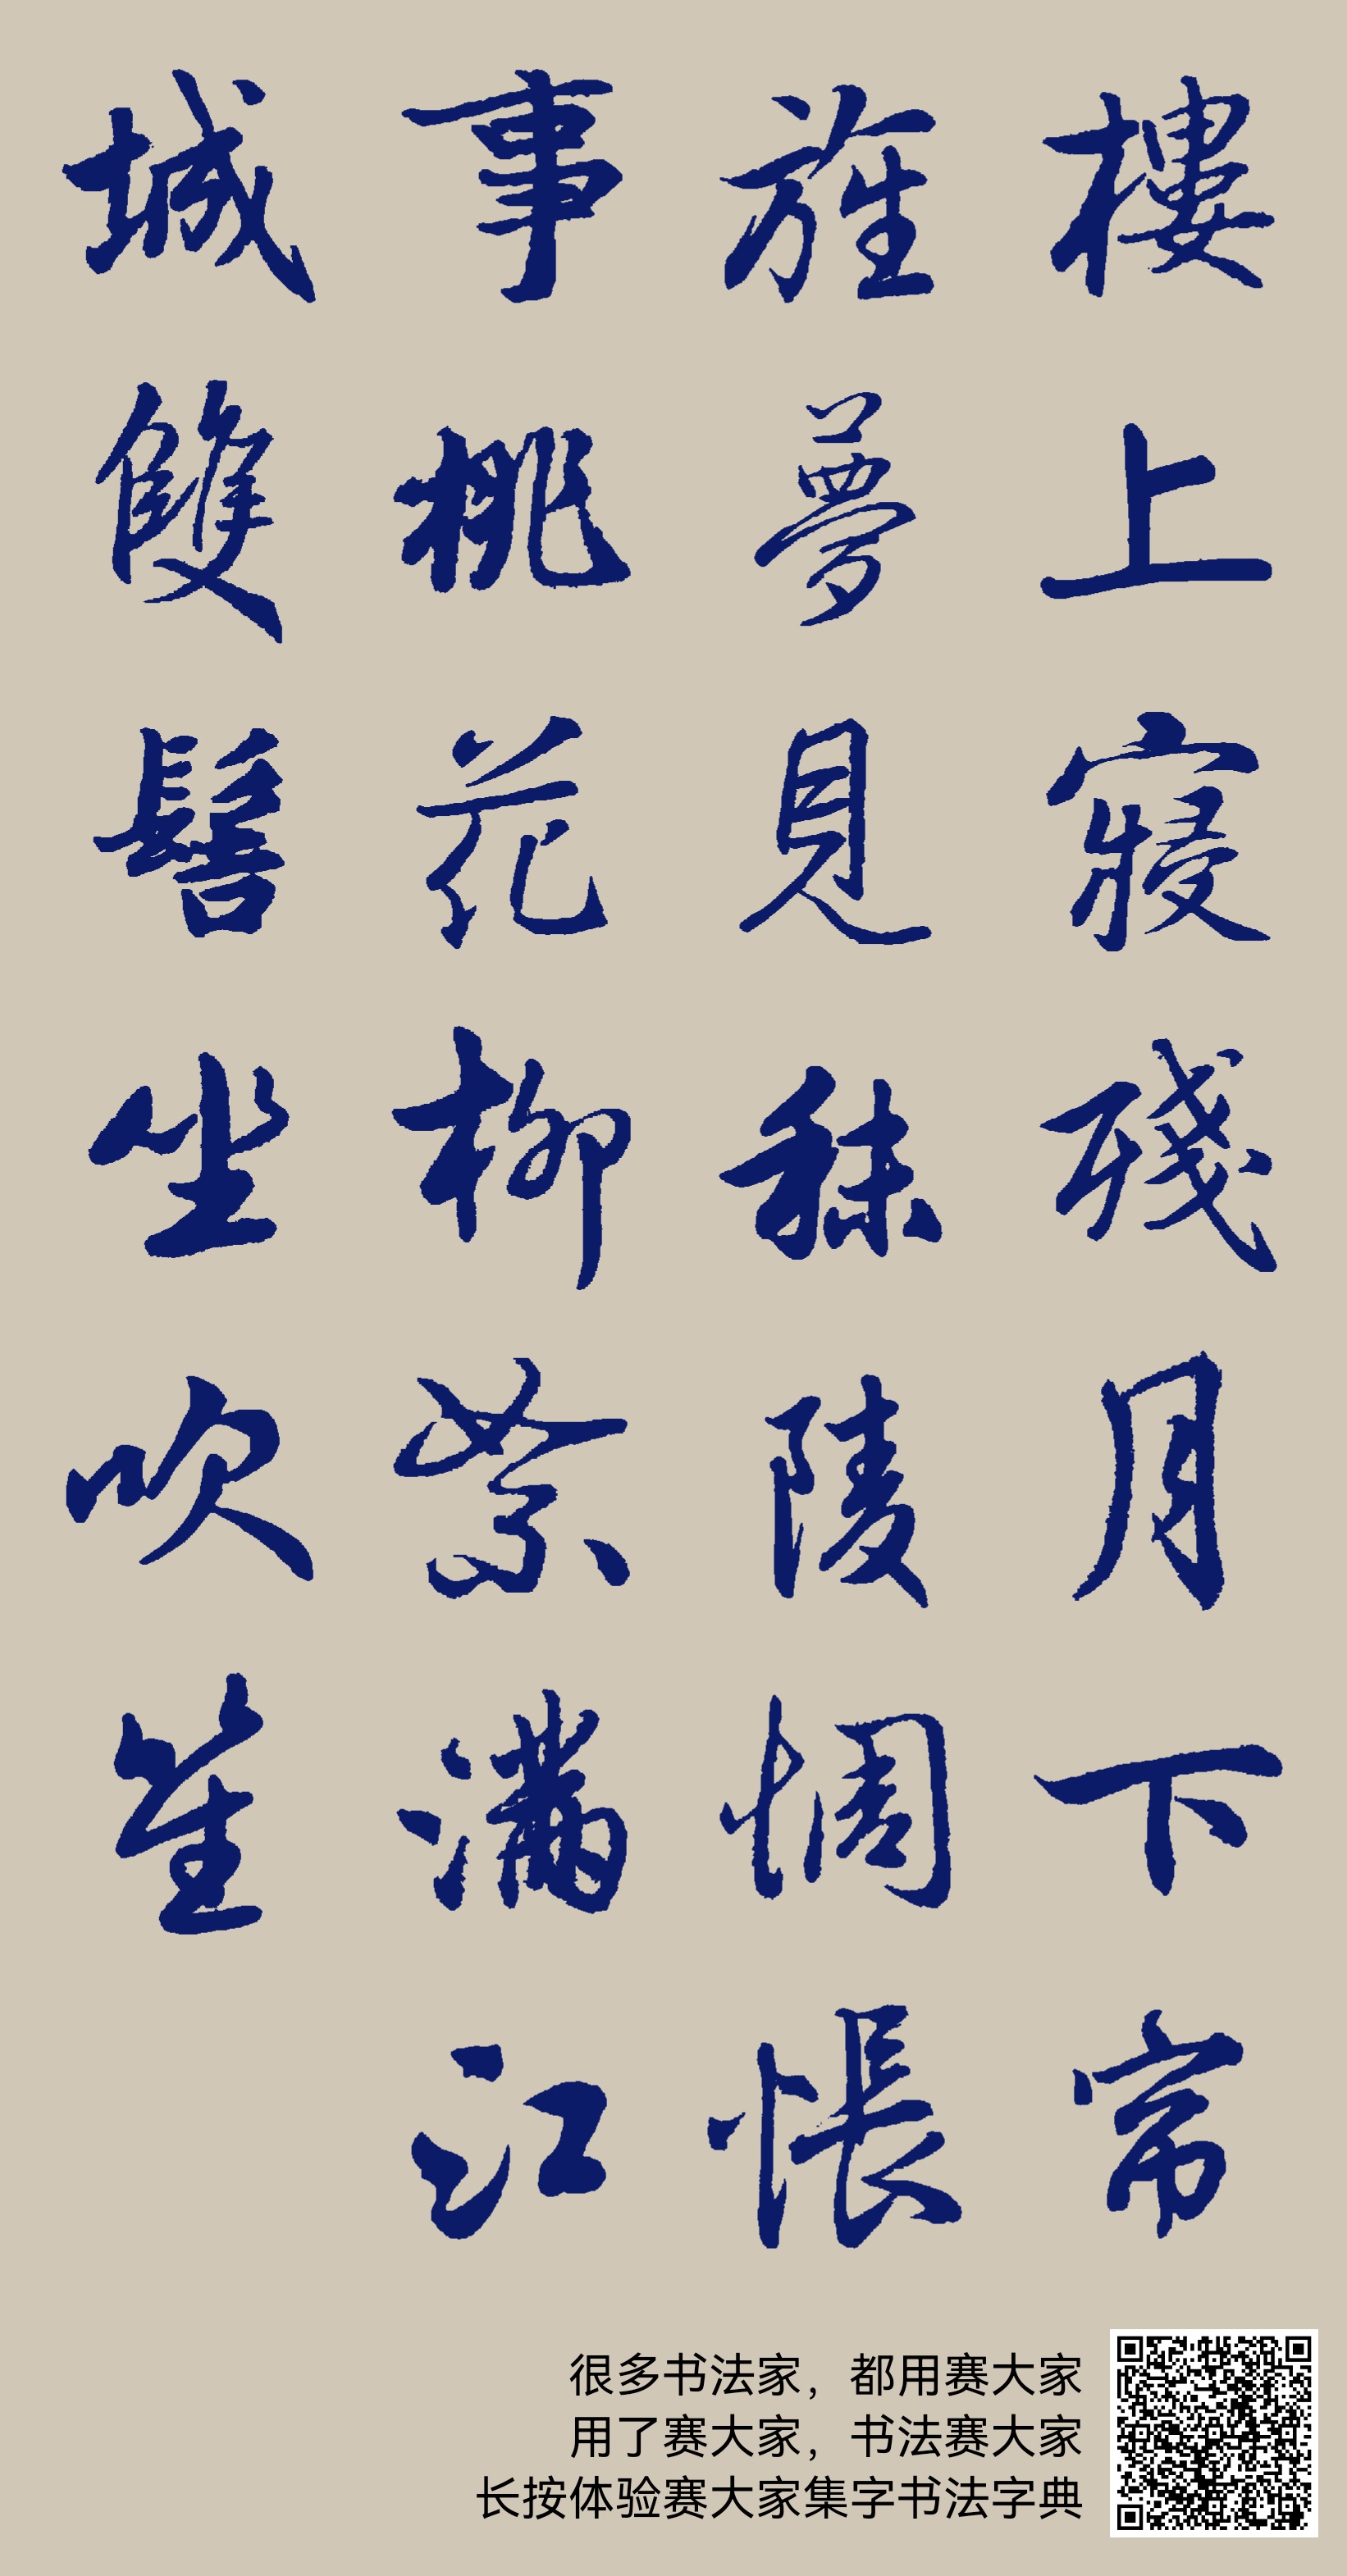 樓上寢殘月下帘
旌夢見秣陵惆悵
事桃花柳絮滿江
城雙髻坐吹笙
很多书法家，都用赛大家
用了赛大家，书法赛大家
长按体验赛大家集字书法字典